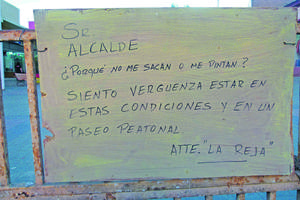 SR.
ALCALDE
¿PORQUÉ NO ME SACAN O ME PINTAN?
SIENTO VERGUENZA ESTAR EN
ESTAS CONDICIONES Y EN UN
PASEO PEATONAL
ATTE. "LA REJA"